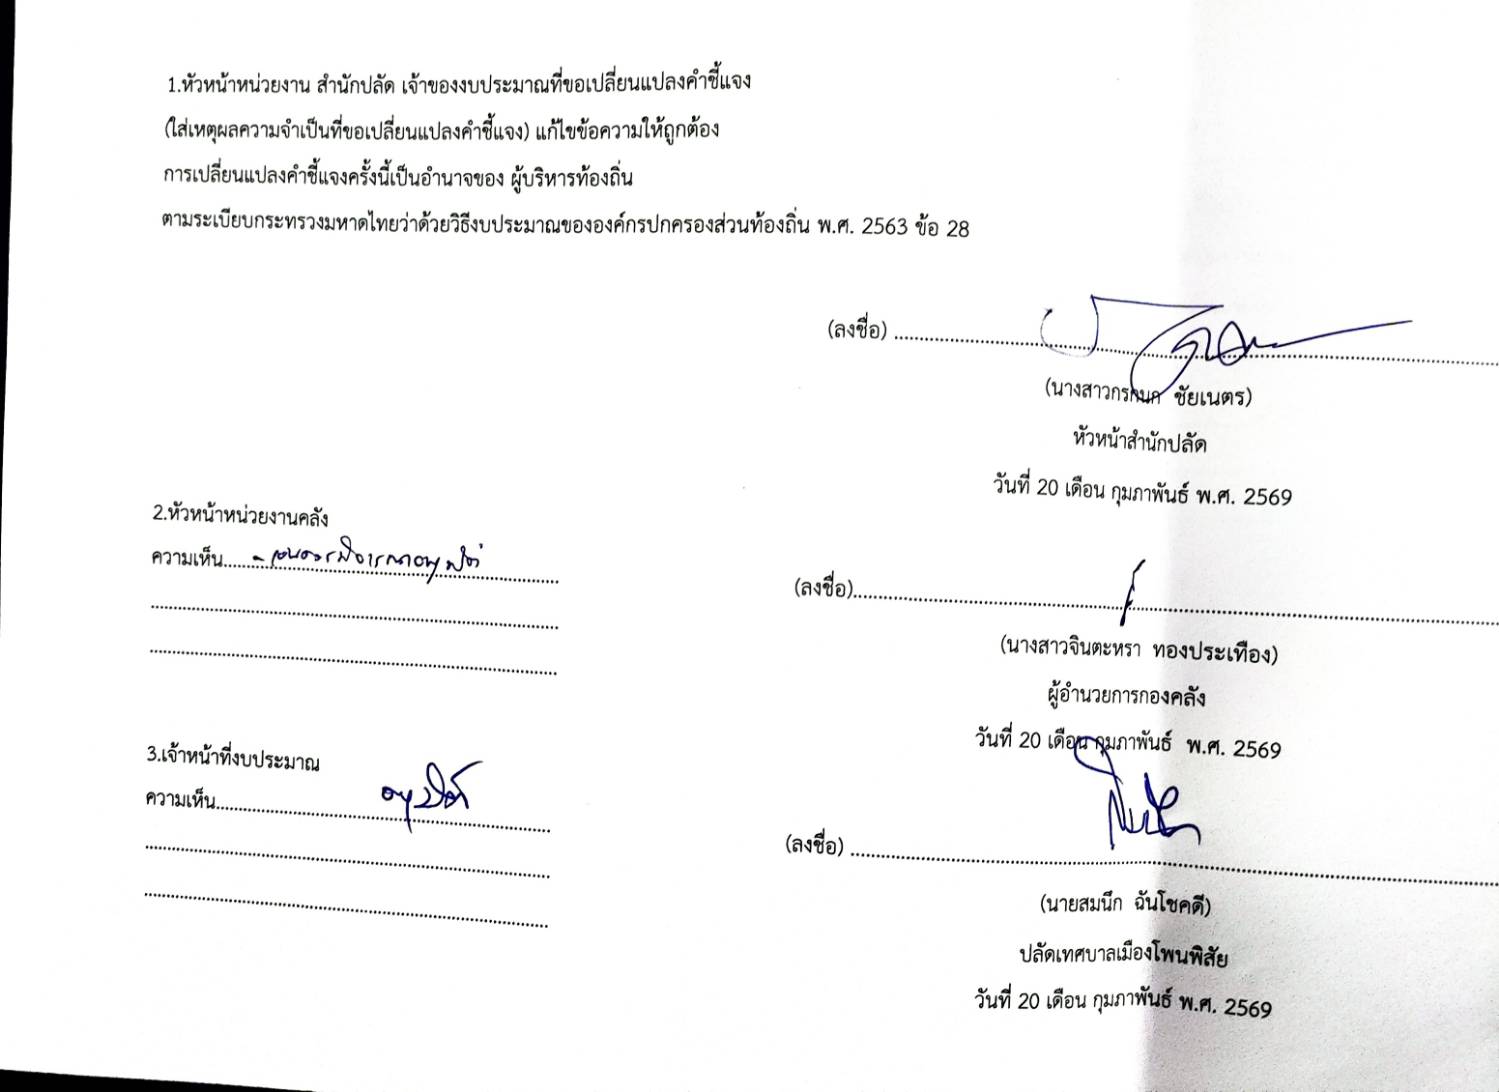 1.หัวหน้าหน่วยงาน สำนักปลัด เจ้าของงบประมาณที่ขอเปลี่ยนแปลงคำชี้แจง
(ใส่เหตุผลความจำเป็นที่ขอเปลี่ยนแปลงคำชี้แจง) แก้ไขข้อความให้ถูกต้อง
การเปลี่ยนแปลงคำชี้แจงครั้งนี้เป็นอำนาจของ ผู้บริหารท้องถิ่น
ตามระเบียบกระทรวงมหาดไทยว่าด้วยวิธีงบประมาณขององค์กรปกครองส่วนท้องถิ่น พ.ศ. 2563 ข้อ 28
(ลงชื่อ)
(นางสาวกรกนก ชัยเนตร)
หัวหน้าสำนักปลัด
วันที่ 20 เดือน กุมภาพันธ์ พ.ศ. 2569
2.หัวหน้าหน่วยงานคลัง
ความเห็น - เห็นควรพิจารณาอนุมัติ
(ลงชื่อ)
(นางสาวจินตะหรา ทองประเทือง)
ผู้อำนวยการกองคลัง
วันที่ 20 เดือน กุมภาพันธ์ พ.ศ. 2569
3.เจ้าหน้าที่งบประมาณ
ความเห็น อนุมัติ
(ลงชื่อ)
(นายสมนึก ฉันโชคดี)
ปลัดเทศบาลเมืองโพนพิสัย
วันที่ 20 เดือน กุมภาพันธ์ พ.ศ. 2569